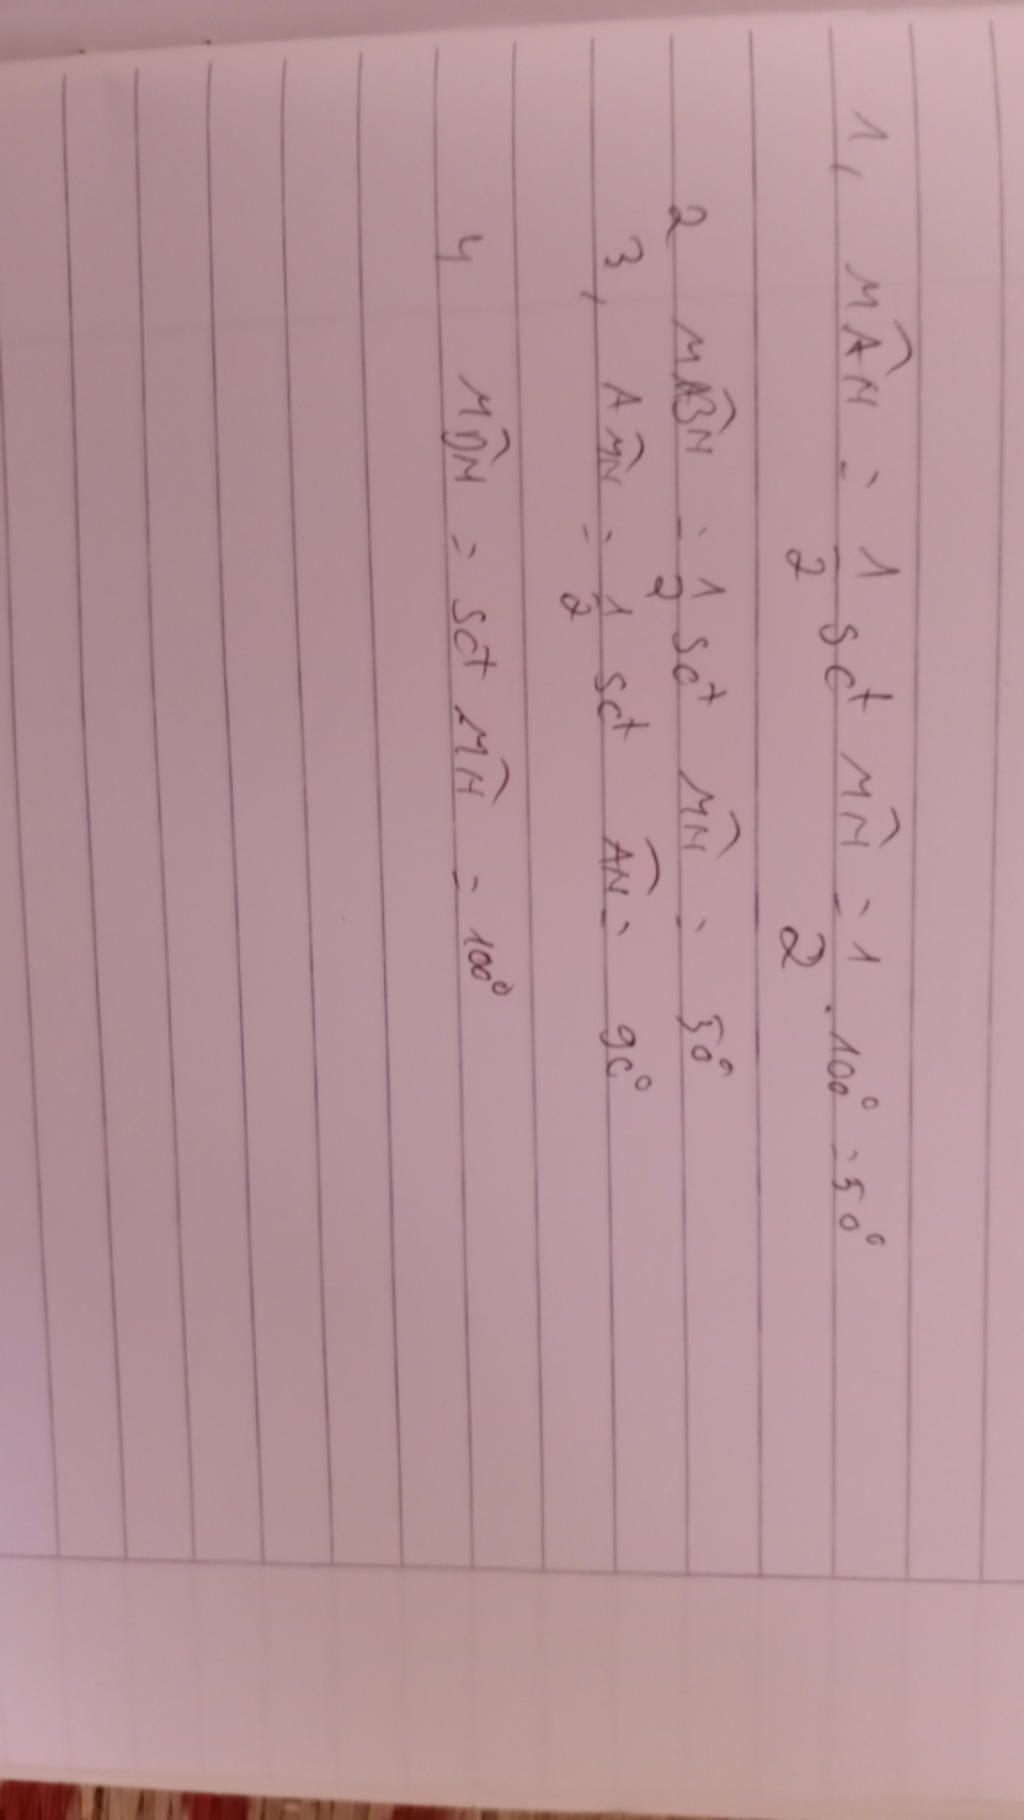 1, MÂN = 1/2 sđ MN = 1/2 . 100° = 50°
2 MBN = 1/2 sđ MN = 50°
3, AMN = 1/2 sđ AN = 90°
4 MDN = sđ MN = 100°